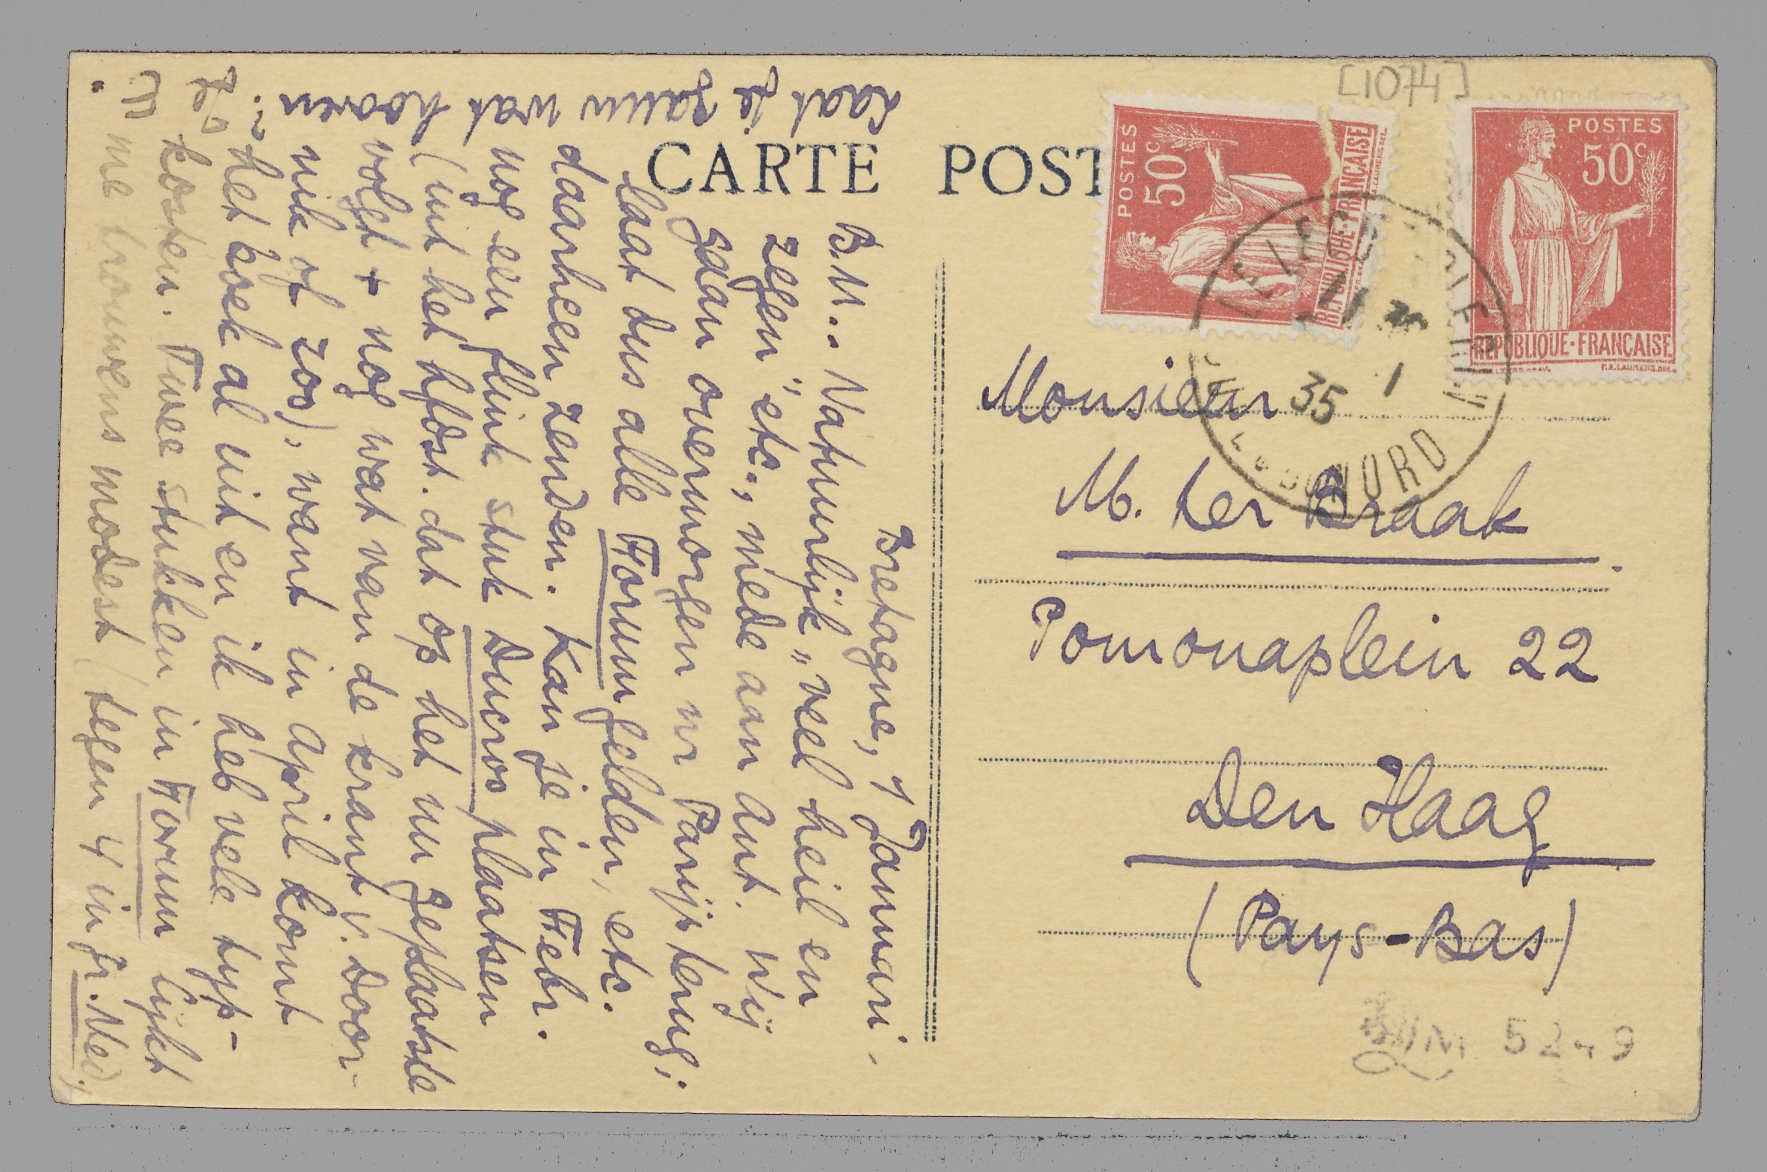 [1074]
CARTE POST
POSTES
50c
REPUBLIQUE-FRANÇAISE
POSTES
50c
REPUBLIQUE-FRANÇAISE
35
1
NORD
Bretagne, 1 Januari.
B.M.. Natuurlijk "veel heil en
zegen" etc., mede aan Ant. Wij
gaan overmorgen nr Parijs terug;
laat dus alle Forumgelden, etc.
daarheen zenden. Kan je in Febr.
nog een flink stuk Ducroo plaatsen
(uit het hfdst. dat op het nu geplaatste
volgt + nog wat van de krant v. door-
nik of zoo), want in April komt
het boek al uit en ik heb vele typ-
kosten. Twee stukken in Forum lijkt
me trouwens modest (tegen 4 in Gr. Ned.)
Laat je gauw wat hooren
?
je
E
Monsieur
M. ter Braak
Pomonaplein 22
Den Haag
(Pays-Bas)
5249